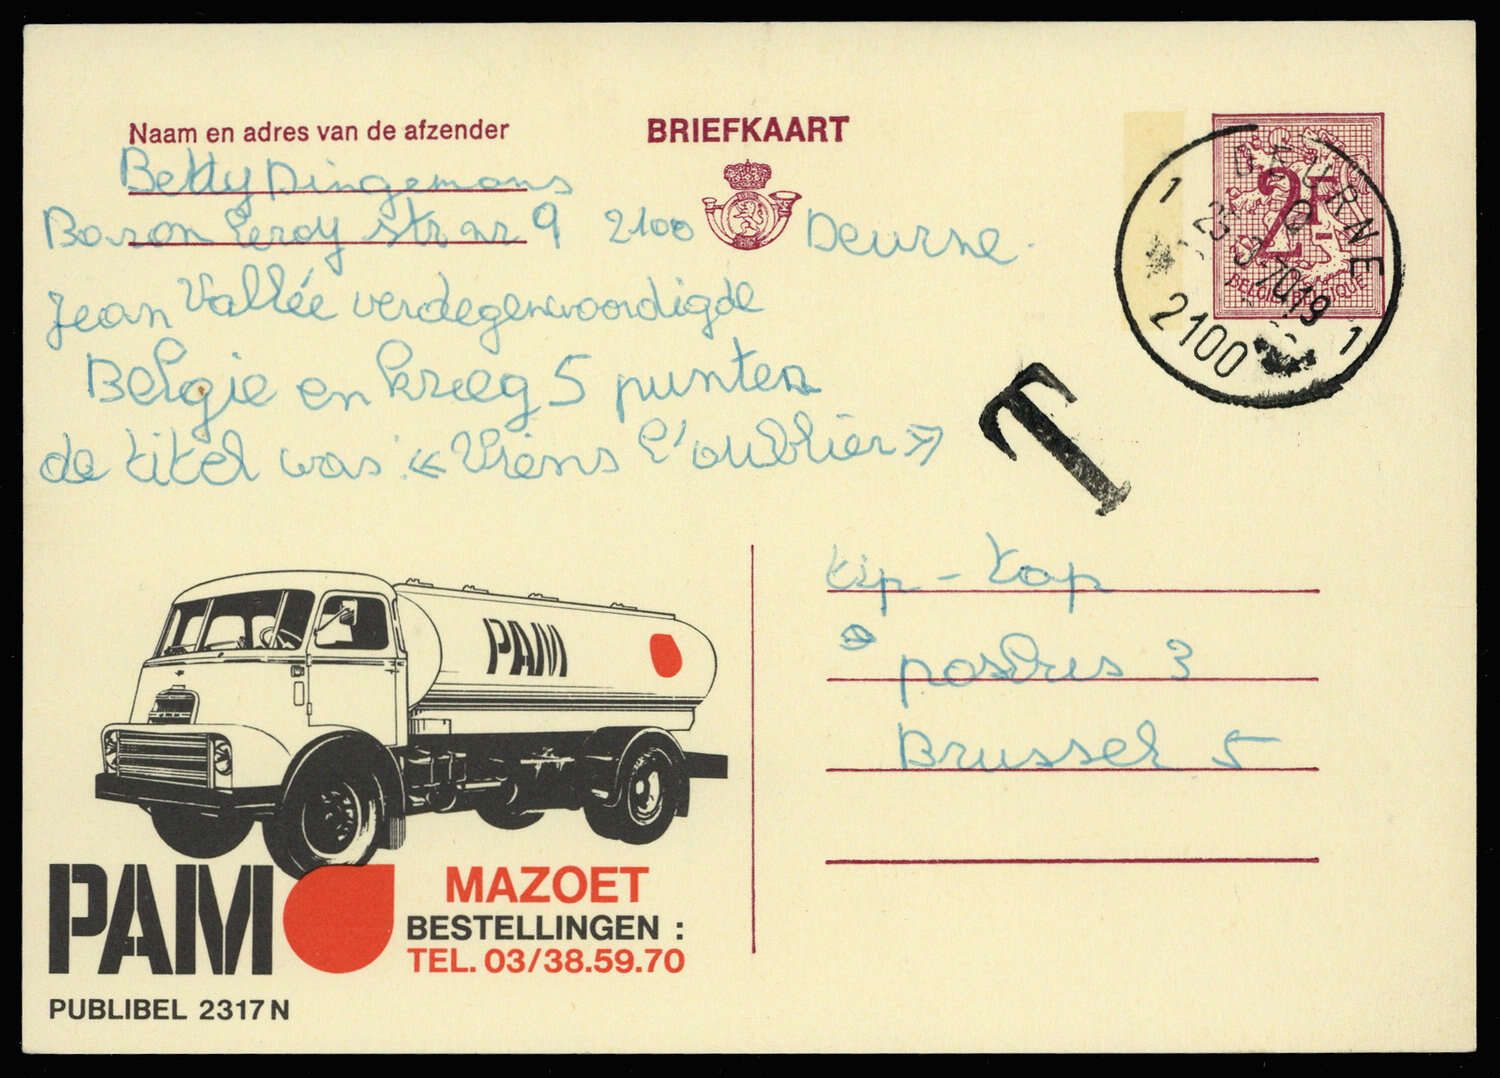 Naam en adres van de afzender
BRIEFKAART
Betty Dingemans
Baron Leroy str nr 9 2100 Deurne.
Jean Vallée verdegenwoordigde
België en kreeg 5 punten
de titel was : « Viens l'oublier »
2F
BELGIE-BELGIQUE
DEURNE
1 1
2100
T
tip - top
postbus 3
Brussel 5
PAM
PAM
MAZOET
BESTELLINGEN :
TEL. 03/38.59.70
PUBLIBEL 2317 N